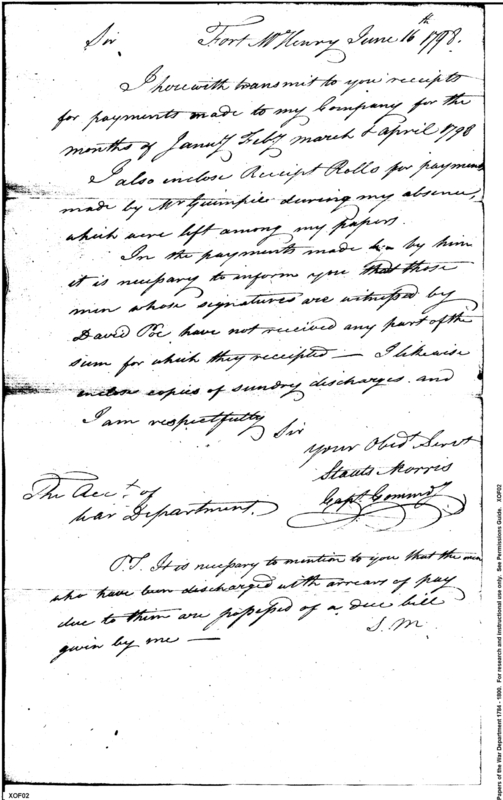 Sir Fort McHenry June 16th 1798.
I herewith transmit to you receipts
for payments made to my Company for the
months of Januy Feby march & april 1798
I also inclose Receipt Rolls for payments
made by Mr Guimpie during my absence,
which were left among my papers.
In the payments made by him
it is necessary to inform you that those
men whose signatures are witnessed by
David Poe have not received any part of the
sum for which they receipted — I likewise
inclose copies of sundry discharges and
I am respectfully
Sir
your Obedt. Servt
Staats Morris
Capt. Commdg
The Acct. of
War Department.
P.S. It is necessary to mention to you that the men
who have been discharged with arrears of pay
due to them are possessed of a due bill
givin by me —
S. M
XOF02
Papers of the War Department 1784 - 1800. For research and instructional use only. See Permissions Guide. XOF02